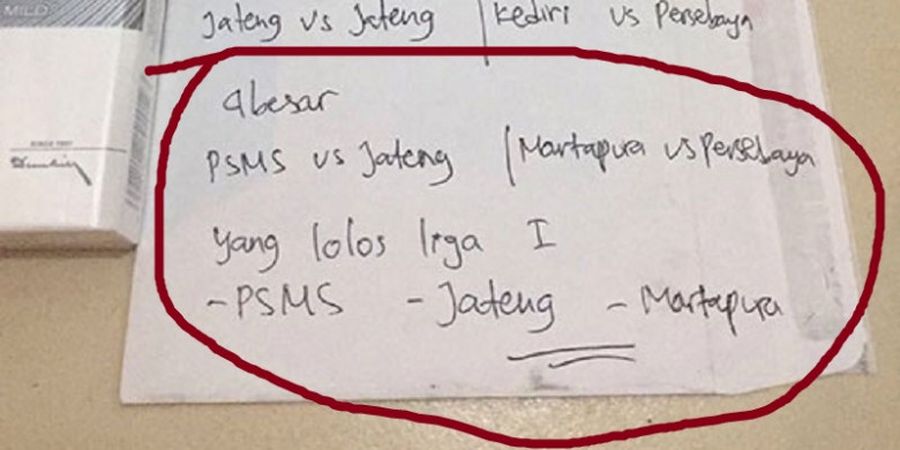 MILD
Jateng vs Jateng | Kediri vs Persebaya
4besar
PSMS vs Jateng | Martapura vs Persebaya
Yang lolos liga I
- PSMS - Jateng - Martapura